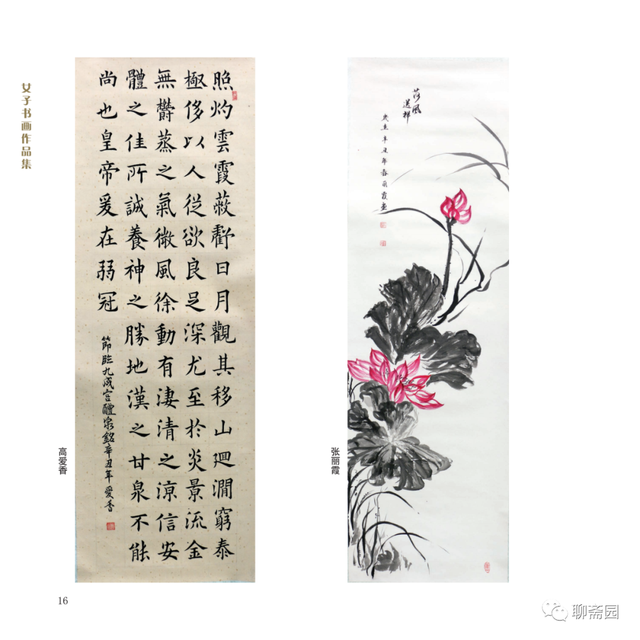 女子书画作品集
照灼雲霞蔽虧日月觀其移山迴澗窮泰
極侈以人從欲良足深尤至於炎景流金
無鬱蒸之氣微風徐動有淒清之涼信安
體之佳所誠養神之勝地漢之甘泉不能
尚也皇帝爰在弱冠
節臨九成宮醴泉銘辛丑年愛香
高爱香
荷風
送
辛丑年春
霞畫
张丽霞
16
聊斋园